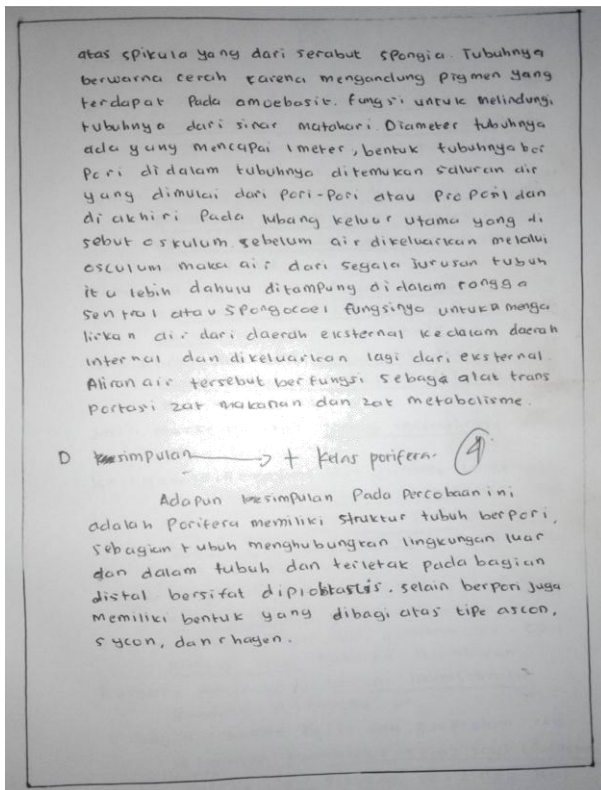 atas spikula yang dari serabut spongia. Tubuhnya
berwarna cerah karena mengandung pigmen yang
terdapat Pada amoebosit. fungsi untuk melindungi
tubuhnya dari sinar matahari. Diameter tubuhnya
ada yang mencapai 1 meter, bentuk tubuhnya ber
Pori didalam tubuhnya ditemukan saluran air
yang dimulai dari Pori-Pori atau Proposil dan
di akhiri Pada lubang keluar utama yang di
sebut oskulum. sebelum air dikeluarkan melalui
osculum maka air dari segala jurusan tubuh
itu lebih dahulu ditampung didalam rongga
sentral atau Spongocoel fungsinya untuk menga
lirkan air dari daerah eksternal kedalam daerah
internal dan dikeluarkan lagi dari eksternal.
Aliran air tersebut berfungsi sebagai alat trans
Portasi zat makanan dan zat metabolisme.
D kesimpulan → + Kelas porifera. 4
Adapun kesimpulan Pada Percobaan ini
adalah Porifera memiliki struktur tubuh berpori,
sebagian tubuh menghubungkan lingkungan luar
dan dalam tubuh dan terletak pada bagian
distal bersifat. selain berpori juga
Memiliki bentuk yang dibagi atas tipe ascon,
sycon, dan rhagen.